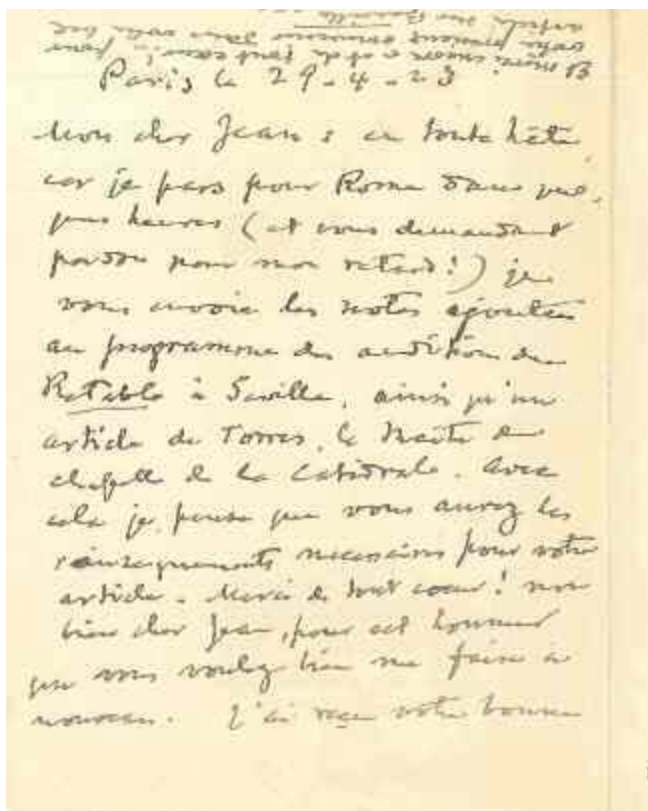 Paris le 29-4-23
Mon cher Jean : en toute hâte
car je pars pour Rome dans quel-
ques heures (et vous demandant
pardon pour mon retard!) je
vous envoie les notes ajoutées
au programme des auditions du
Retablo à Sevilla, ainsi qu'un
article de Torres, le Maître de
chapelle de la Catédrale. Avec
cela je pense que vous aurez les
renseignements necessaires pour votre
article. Merci de tout coeur! mon
bien cher Jean, pour cet honneur
que vous voulez bien me faire à
nouveau. J'ai reçu votre bonne
Et merci encore et de tout coeur! pour
votre précieux dans votre bel
article sur